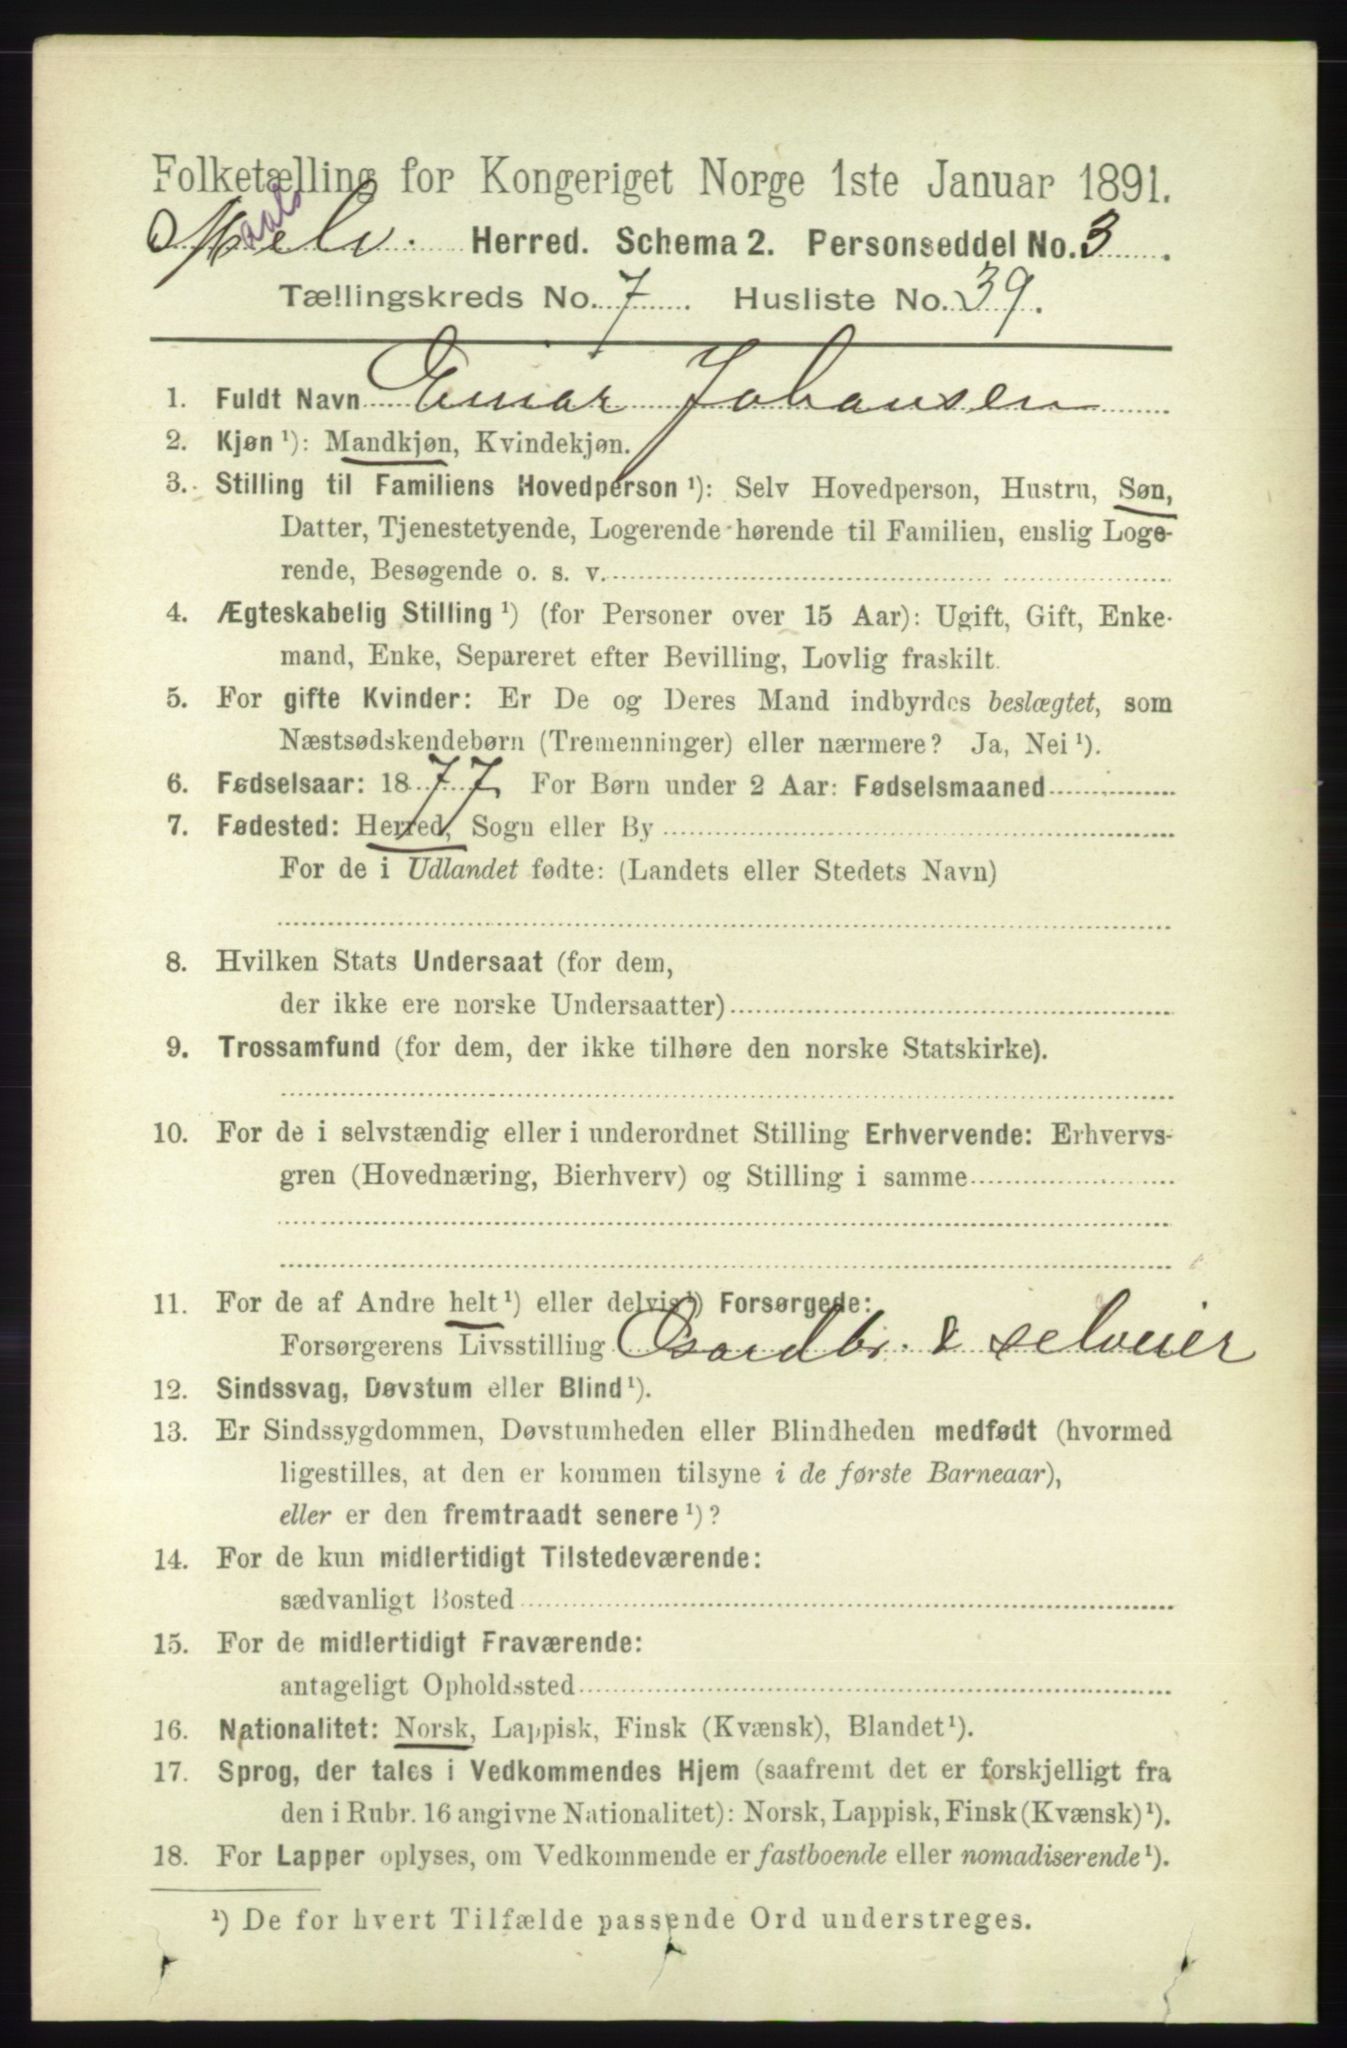 Folketælling for Kongeriget Norge 1ste Januar 1891.
Maalselv. Herred. Schema 2. Personseddel No. 3.
Tællingskreds No. 7. Husliste No. 39.
1. Fuldt Navn Einar Johansen
2. Kjøn ¹): Mandkjøn, Kvindekjøn.
3. Stilling til Familiens Hovedperson ¹): Selv Hovedperson, Hustru, Søn,
Datter, Tjenestetyende, Logerende hørende til Familien, enslig Loge-
rende, Besøgende o. s. v.
4. Ægteskabelig Stilling ¹) (for Personer over 15 Aar): Ugift, Gift, Enke-
mand, Enke, Separeret efter Bevilling, Lovlig fraskilt.
5. For gifte Kvinder: Er De og Deres Mand indbyrdes beslægtet, som
Næstsødskendebørn (Tremenninger) eller nærmere? Ja, Nei ¹).
6. Fødselsaar: 1877. For Børn under 2 Aar: Fødselsmaaned
7. Fødested: Herred, Sogn eller By
For de i Udlandet fødte: (Landets eller Stedets Navn)
8. Hvilken Stats Undersaat (for dem,
der ikke ere norske Undersaatter)
9. Trossamfund (for dem, der ikke tilhøre den norske Statskirke).
10. For de i selvstændig eller i underordnet Stilling Erhvervende: Erhvervs-
gren (Hovednæring, Bierhverv) og Stilling i samme
11. For de af Andre helt ¹) eller delvis ¹) Forsørgede:
Forsørgerens Livsstilling Gaardbr. & selveier
12. Sindssvag, Døvstum eller Blind ¹).
13. Er Sindssygdommen, Døvstumheden eller Blindheden medfødt (hvormed
ligestilles, at den er kommen tilsyne i de første Barneaar),
eller er den fremtraadt senere ¹)?
14. For de kun midlertidigt Tilstedeværende:
sædvanligt Bosted
15. For de midlertidigt Fraværende:
antageligt Opholdssted
16. Nationalitet: Norsk, Lappisk, Finsk (Kvænsk), Blandet ¹).
17. Sprog, der tales i Vedkommendes Hjem (saafremt det er forskjelligt fra
den i Rubr. 16 angivne Nationalitet): Norsk, Lappisk, Finsk (Kvænsk) ¹).
18. For Lapper oplyses, om Vedkommende er fastboende eller nomadiserende ¹).
¹) De for hvert Tilfælde passende Ord understreges.